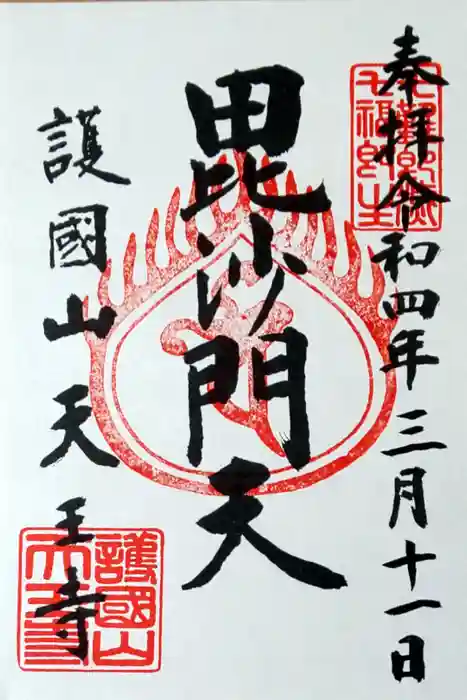 奉拝令和四年三月十一日
毘沙門天
護國山天王寺
護國山
天王寺